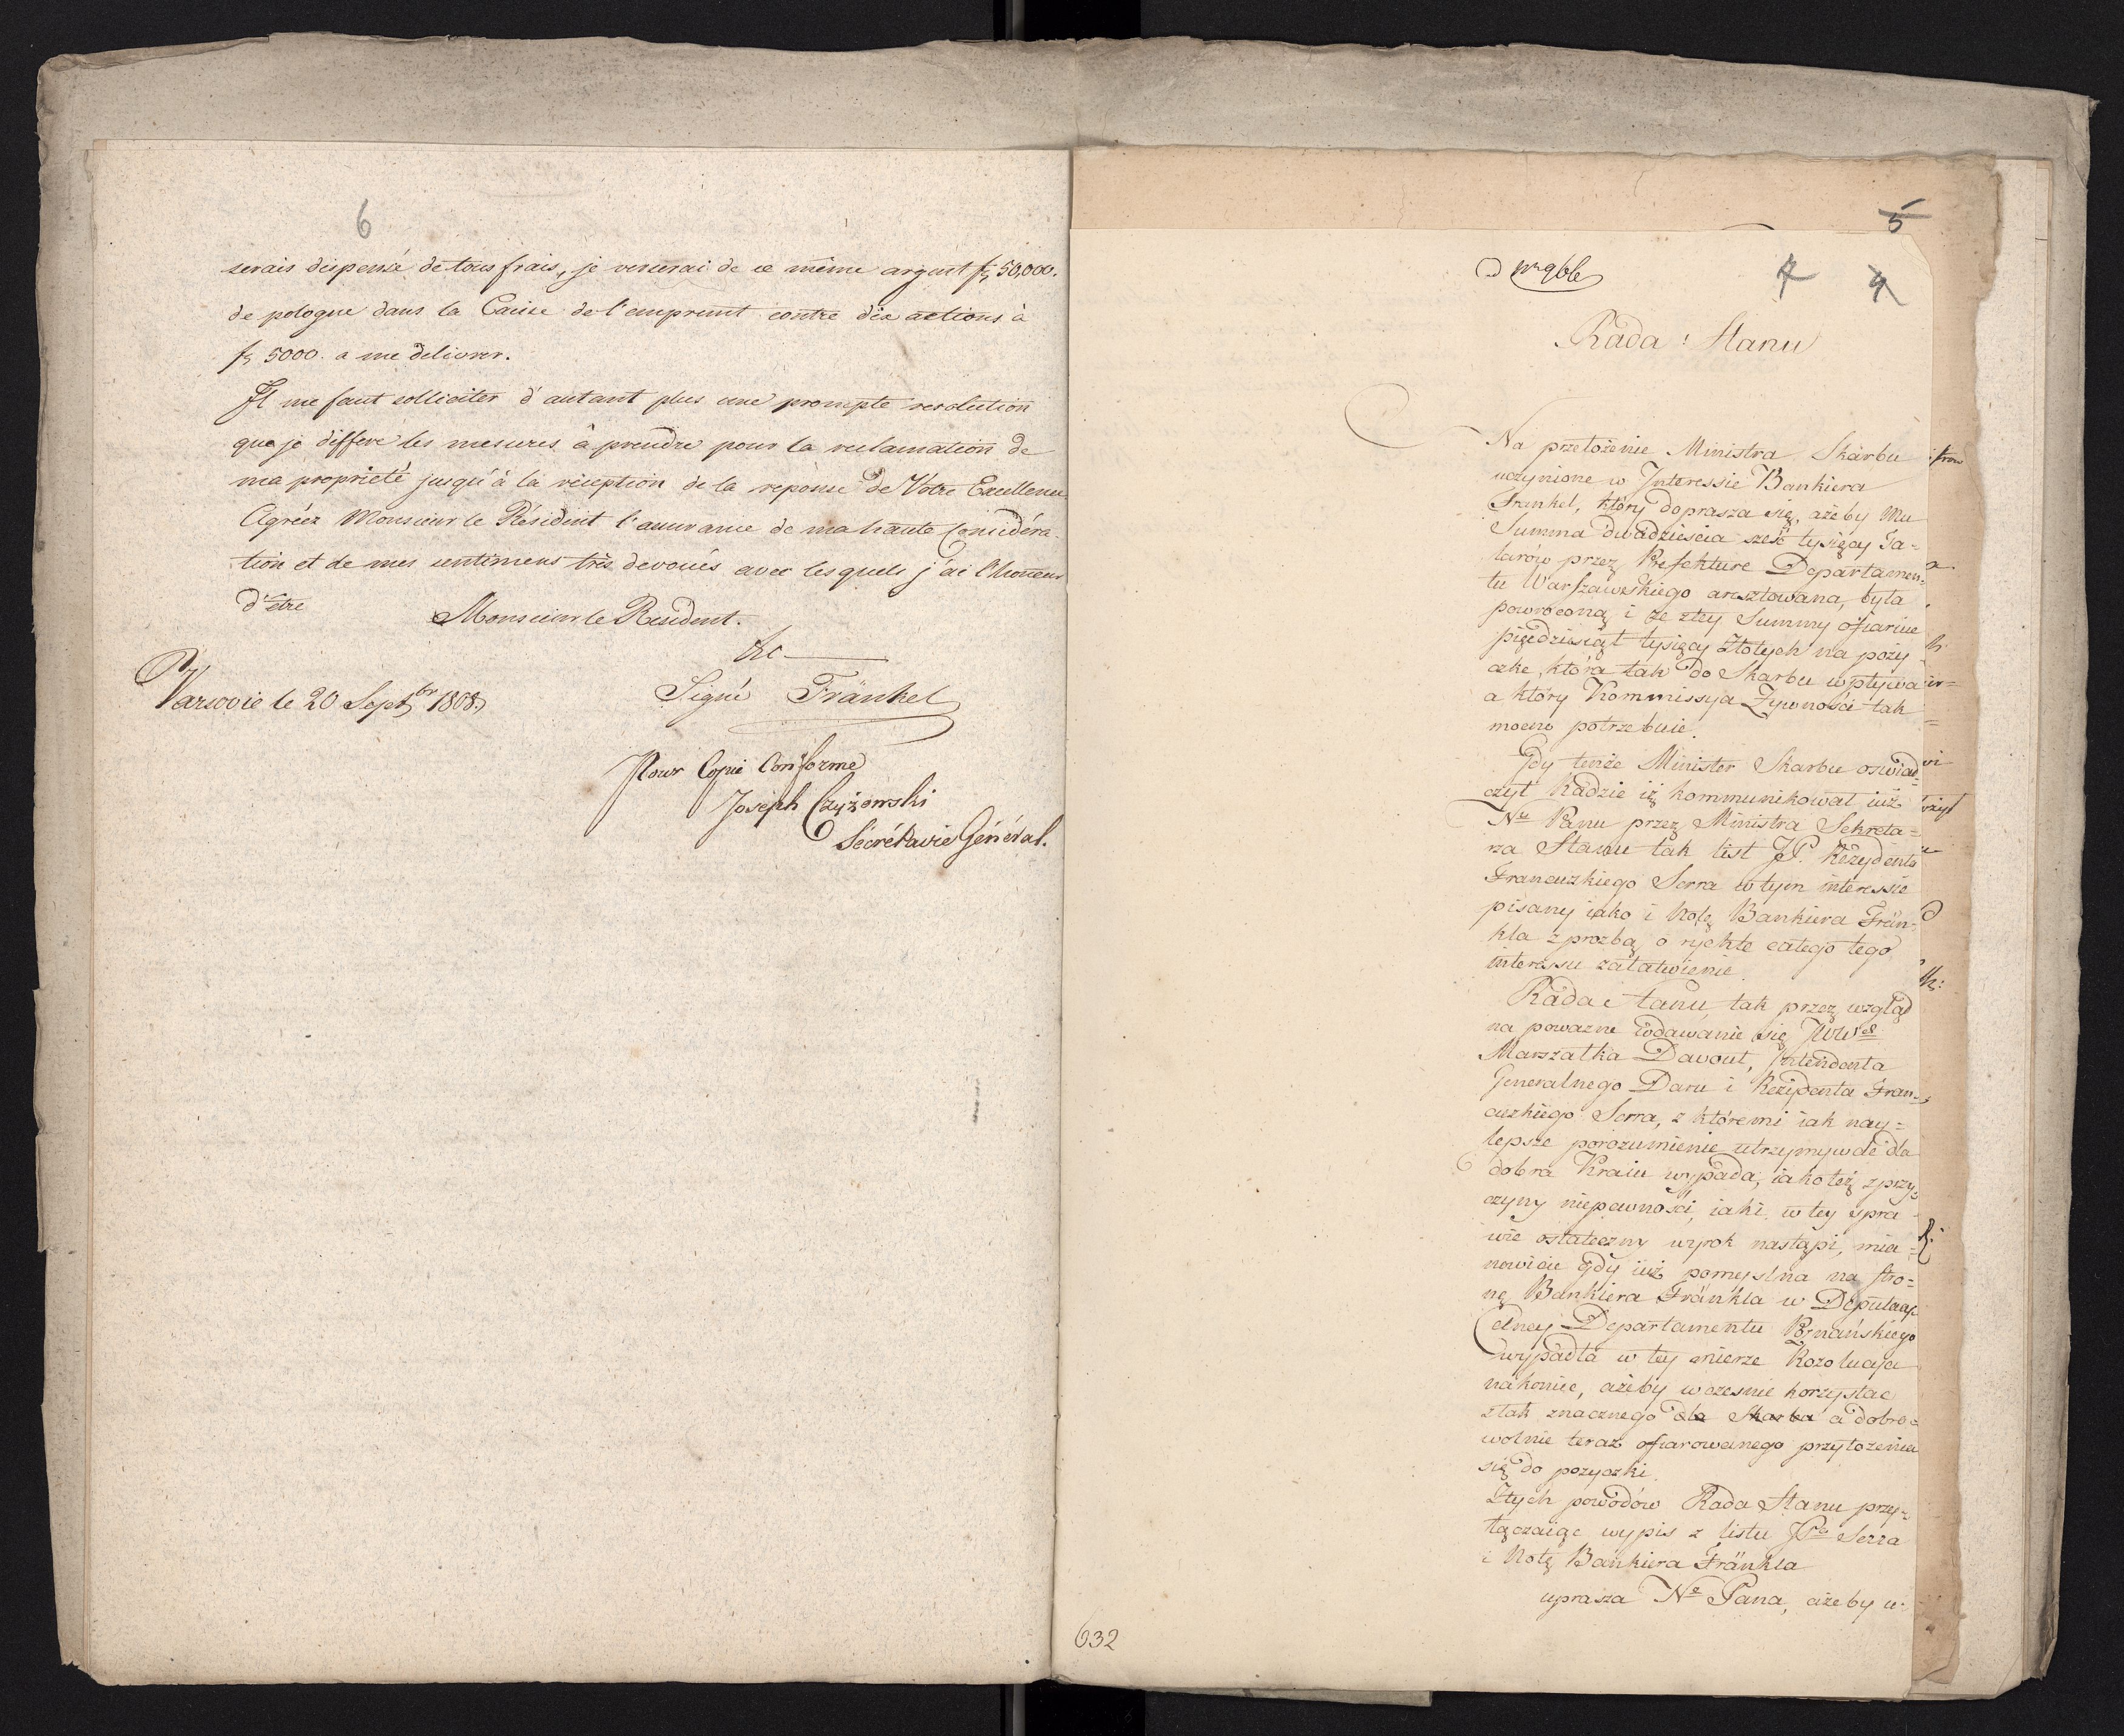 6
serais dispensé de tous frais, je verserai de ce même argent f 50,000.
de pologne dans la Caisse de l'emprunt contre dix actions à
f 5000. a me delivrer.
Il me faut solliciter d'autant plus une prompte resolution
que je differe les mesures à prendre pour la reclamation de
ma proprieté jusqu'à la réception de la réponse de Votre Excellence.
Agréez Monsieur le Résident l'assurance de ma haute Considéra-
tion et de mes sentimens très devoués avec lesquels j'ai l'honneur
d'être
Monsieur le Resident.
&c
Varsovie le 20 Septbr 1808.
Signé Fränkel
Pour Copie Conforme
Joseph Czyżowski
Sécrétaire Général.
5
4
Rada Stanu
Na przełożenie Ministra Skarbu
uczynione w Interessie Bankiera
Frankel, który doprasza się, ażeby Mu
Summa dwadzieścia sześć tysięcy Ta=
larów przez Prefekture Departamen=
tu Warszawskiego aresztowana, była
powroconą i że ztey Summy ofiaruie
pięćdziesiąt tysięcy Złotych na poży
czkę, która tak do Skarbu wpływa
a który Kommissya Żywności tak
mocno potrzebuie.
Gdy tenże Minister Skarbu oswiad=
czył Radzie iż kommunikował iuż
Nu Panu przez Ministra Sekreta=
rza Stanu tak list JP. Rezydenta
Francuzkiego Serra w tym interessie
pisany iako i Notę Bankiera Frän=
kla z prozbą o rychłe całego tego
interessu załatwienie.
Rada Stanu tak przez wzgląd
na powazne wdawanie się JWW
Marszałka Davout, Intendenta
Generalnego Daru i Rezydenta Fran=
cuzkiego Serra, z któremi iak nay=
lepsze porozumienie utrzymywać dla
dobra Kraiu wypada, iako też z przy=
czyny niepewności, iaki w tey spra
wie ostateczny wyrok nastąpi, mia=
nowicie gdy iuż pomyslna na stro=
nę Bankiera Fränkla w Deputacyi
Celney Departamentu Poznańskiego
wypadła w tey mierze Rezolucya
nakoniec, ażeby wczesnie korzystać
z tak znacznego dla Skarbu a dobro=
wolnie teraz ofiarowanego przyłożenia
się do pozyczki.
Ztych powodów Rada Stanu przy=
łączaiąc wypis z listu JPa Serra
i Notę Bankiera Fränkla
uprasza Ne Pana, ażeby w
632